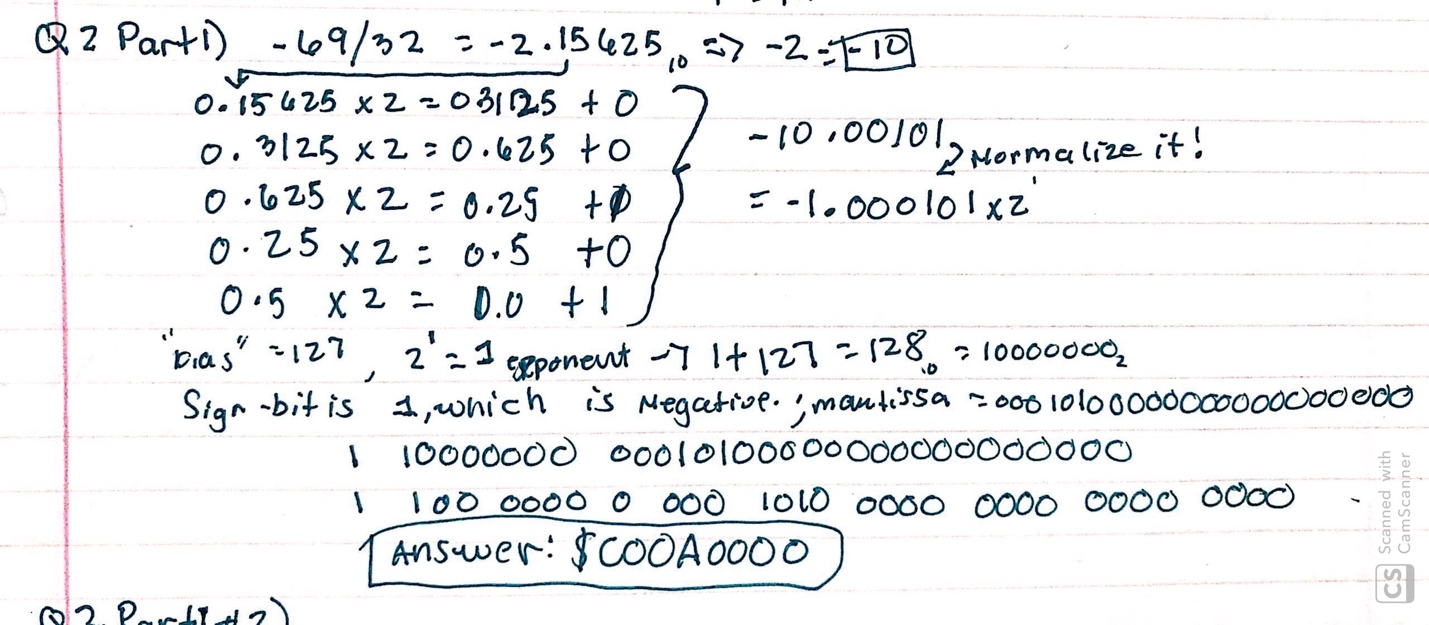 Q2 Part1) -69/32 = -2.15625₁₀ => -2 = -10
0.15625 x 2 = 03125 + 0
0.3125 x 2 = 0.625 + 0
0.625 x 2 = 0.25 + 1
0.25 x 2 = 0.5 + 0
0.5 x 2 = 0.0 + 1
-10.00101 Normalize it!
= -1.000101 x 2¹
"bias" = 127, 2¹ = 1 exponent → 1 + 127 = 128₁₀ = 10000000₂
Sign-bit is 1, which is Negative. ; mantissa = 00010100000000000000000
1 10000000 00010100000000000000000
1 100 0000 0 000 1010 0000 0000 0000 0000
Answer: $C00A0000
Scanned with
CamScanner
CS